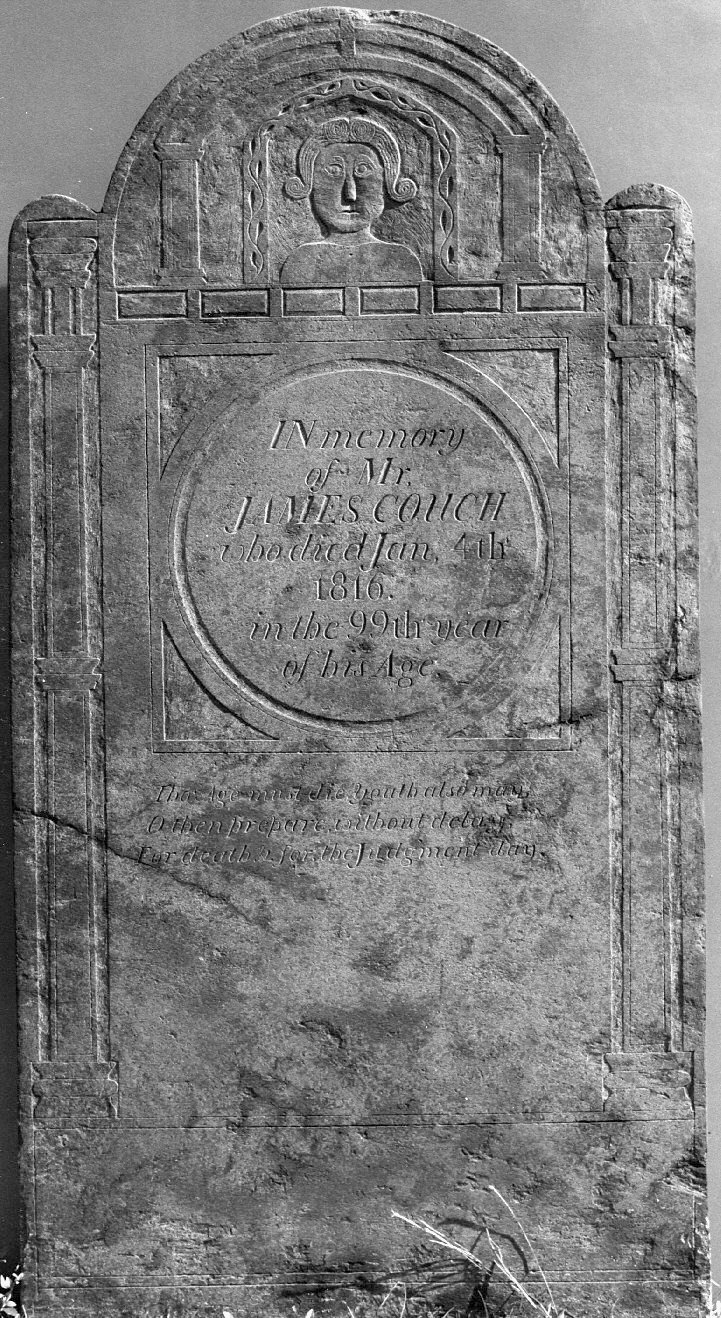 IN memory
of Mr.
JAMES COUCH
who died Jan, 4th
1816.
in the 99th year
of his Age
Tho' Age must die Youth also may,
O then prepare without delay
For death & for the Judgment day.